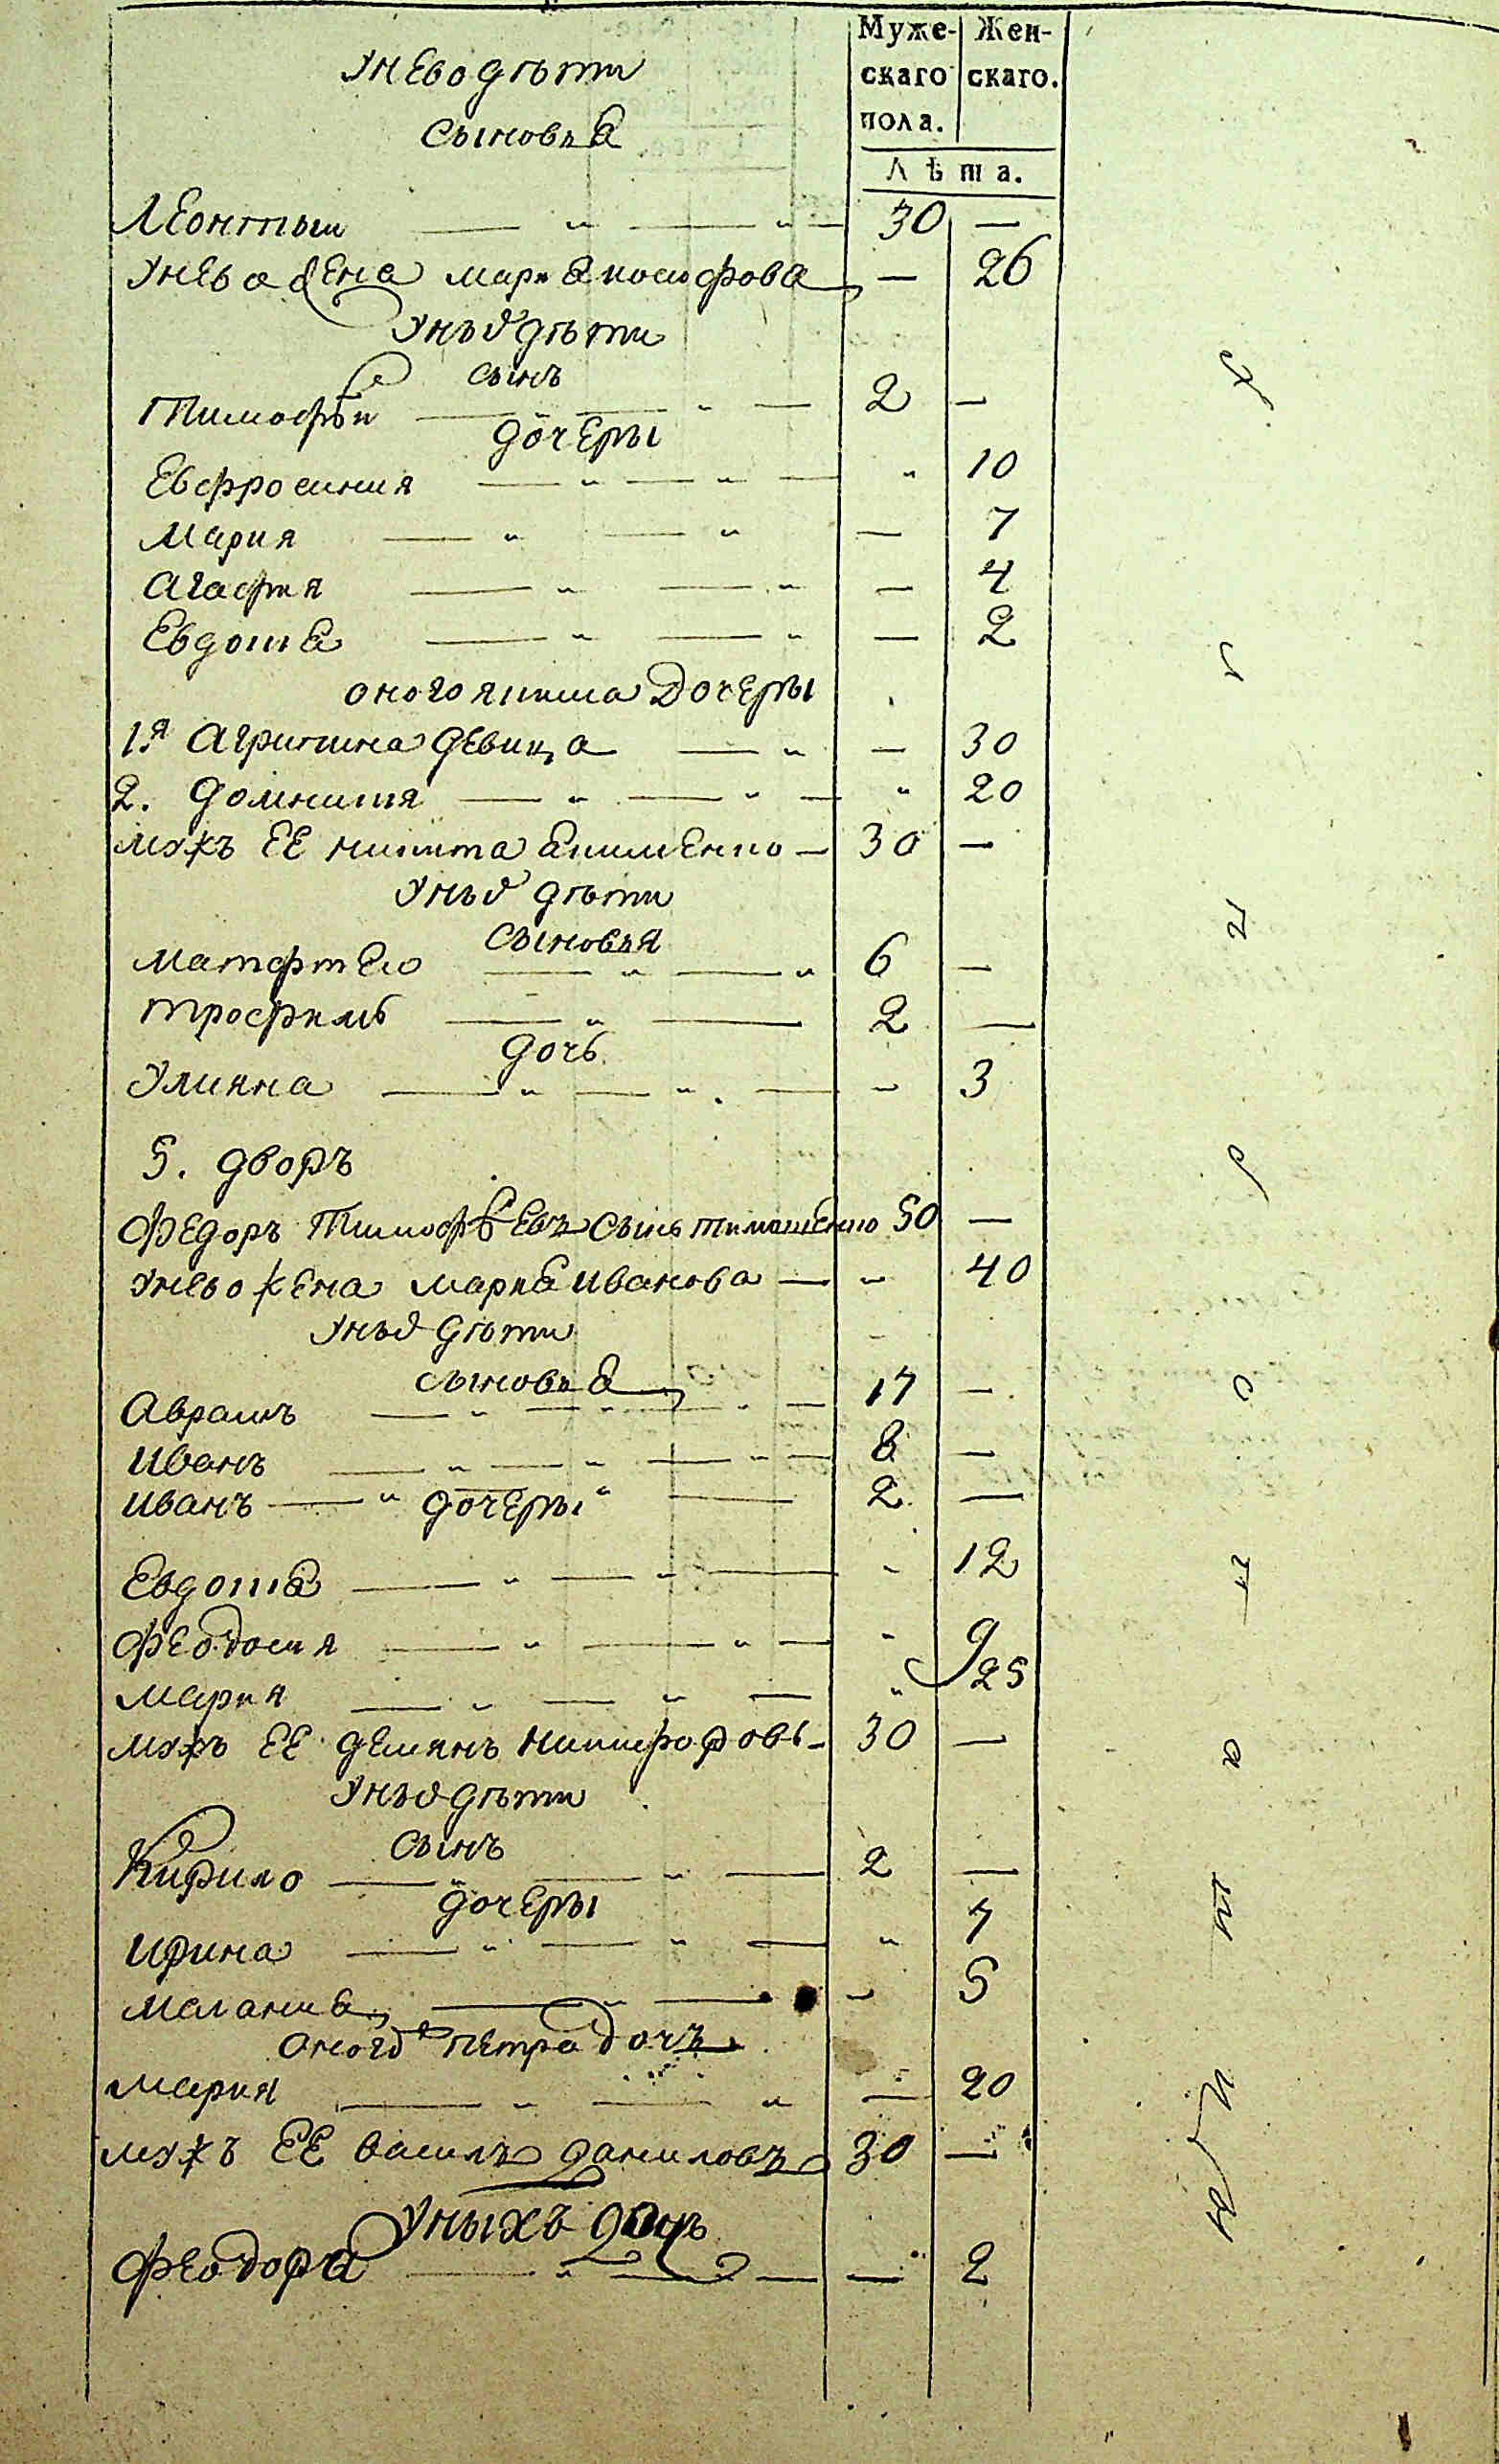 Муже- Жен-
скаго скаго.
пола.
Лѣта.
Унево дѣти
Сыновья
Леонтыи — " — " — 30 —
Унево жена Мария — 26
Унъхъ дѣти
сынъ
Тимофѣй — " — " — 2 —
дочеры
Евфросиния — " — " — " 10
Мария — " — " — 7
Агафия — " — " — 4
Евдокия — " — " — 2
оного якима Дочеры
1.я Агрипина девица — " — 30
2. Домникия — " — " — " 20
мужъ ЕЕ никита — 30 —
Унъхъ дѣти
Сыновья
Матфтею — " — " 6 —
Трофимъ — " — 2 —
дочь
Улияна — " — " — " 3
5. дворъ
Федоръ Тимофѣевъ Сынъ тимошенко 50 —
Унево жена Мария Иванова — " 40
Унъхъ дѣти
сыновья
Аврамъ — " — " — 17 —
Иванъ — " — " — " — 8 —
Иванъ — " " — 2 —
дочеры
Евдокия — " — " — " 12
Феодосия — " — " — " 9
Мария — " — " — " 25
мужъ ЕЕ демянъ никифоровъ — 30 —
Унъхъ дѣти
Сынъ
Кирило — " — " — 2 —
дочеры
Ирина — " — " — " 7
Мелания — " — " 5
Оного Петра дочь
Мария — " — " — 20
мужъ ЕЕ василъ даниловъ 30 —
Уныхъ дочъ
Феодора — " — — 2